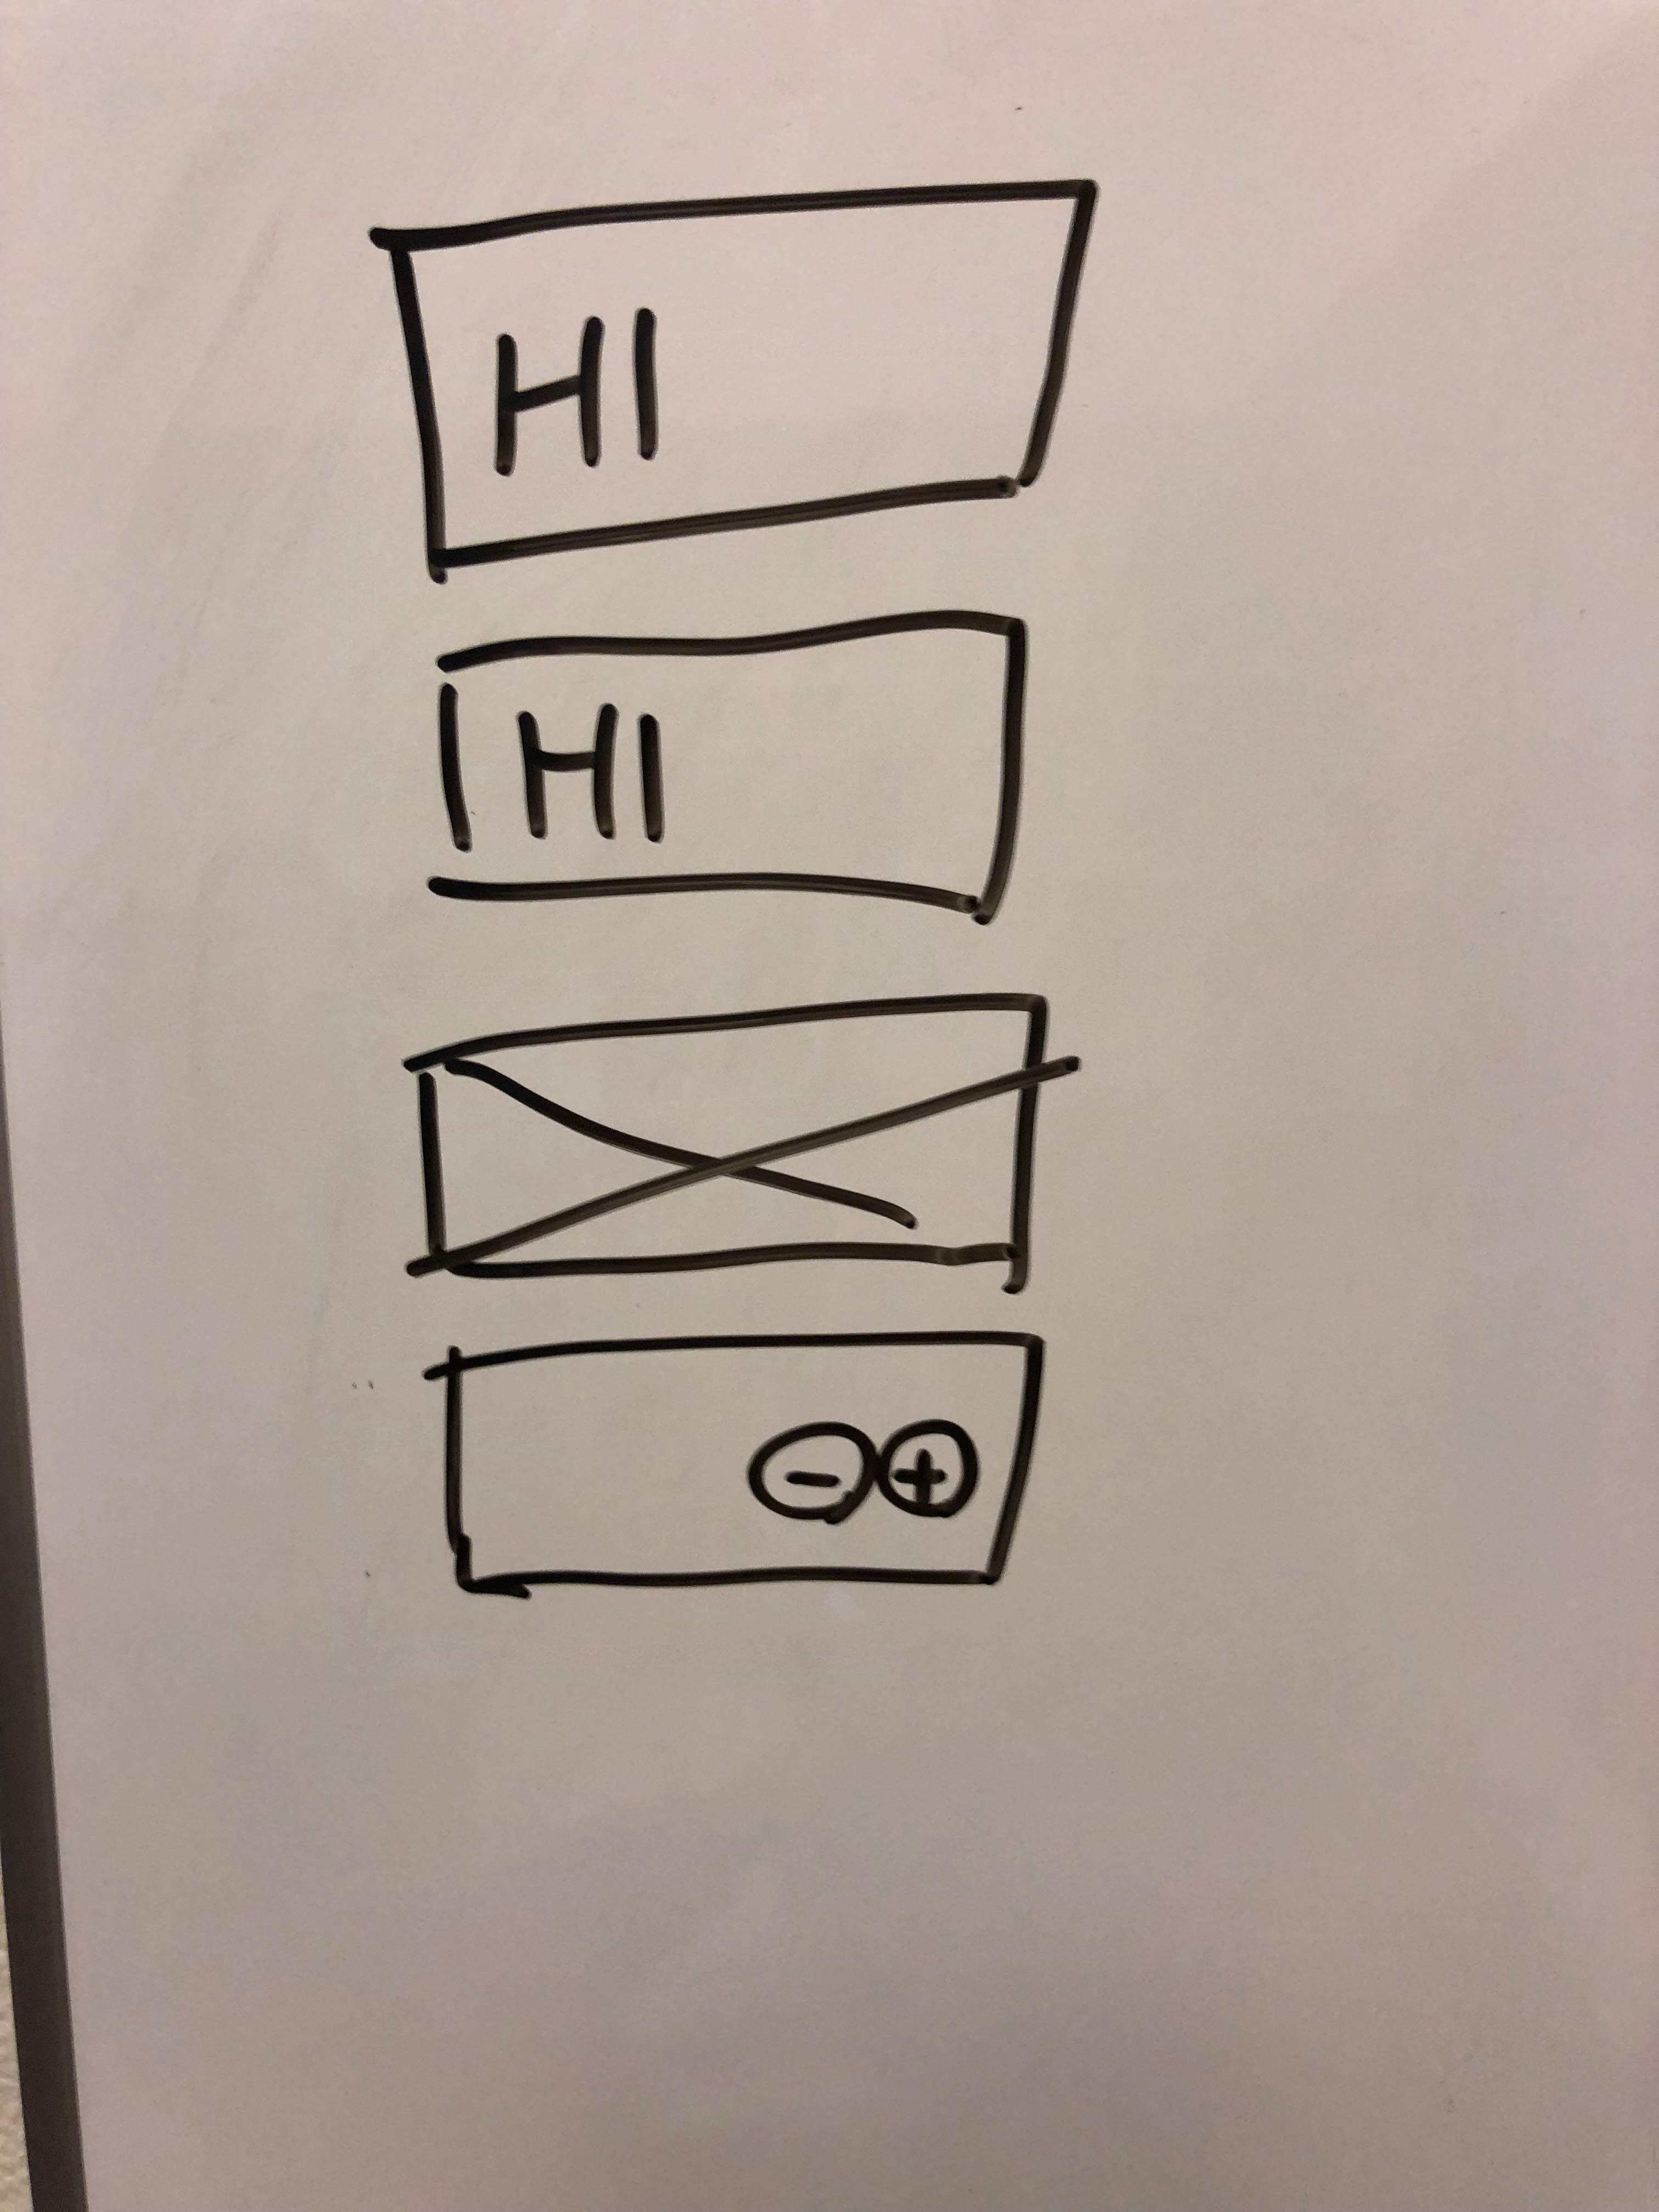 HI
HI
- +